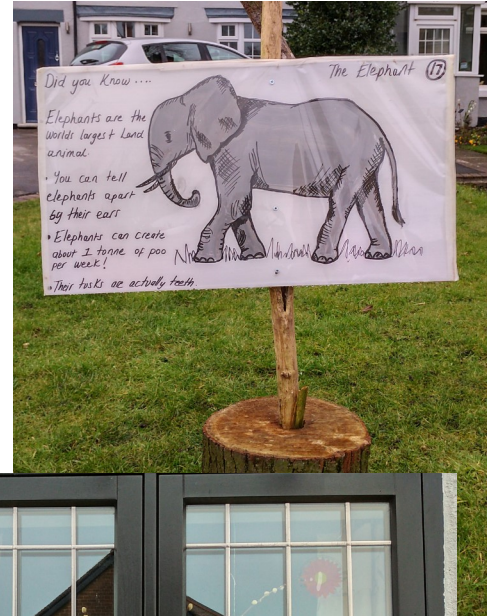 Did you Know ....
The Elephant 17.
Elephants are the
worlds largest Land
animal.
• You can tell
elephants apart
by their ears
• Elephants can create
about 1 tonne of poo
per week!
• Their tusks are actually teeth